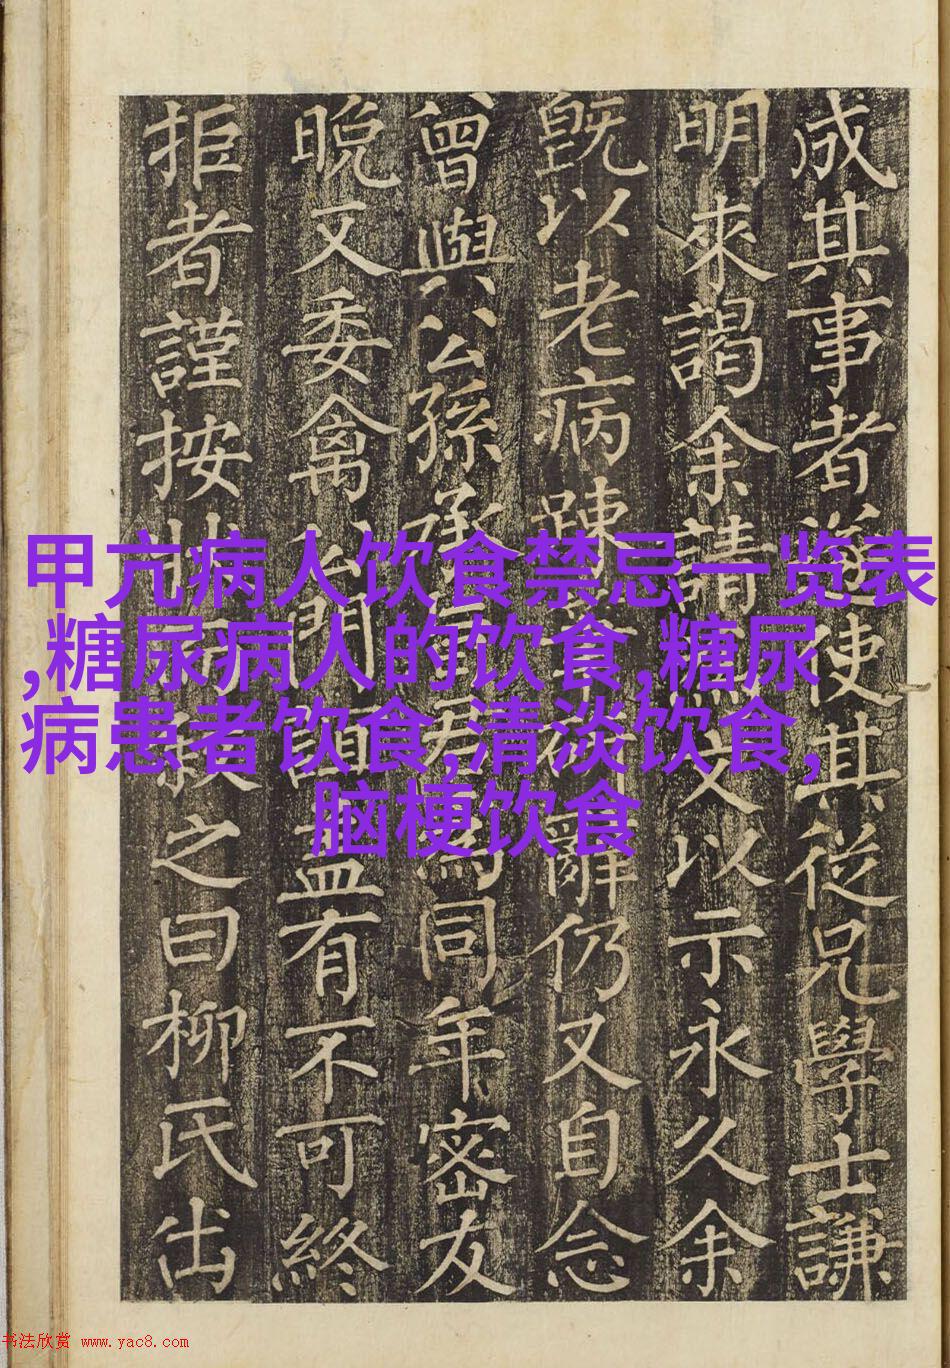 成其事者使其從兄學士謙
明來謁余請文以示永久余
既以老病踈辭仍又自念
曾與公孫承君為同年密友
晚又委禽門盖有不可終
拒者謹按叙之曰柳氏出
甲亢病人饮食禁忌一览表
,糖尿病人的饮食,糖尿
病患者饮食,清淡饮食,
脑梗饮食
书法欣赏 www.yac8.com